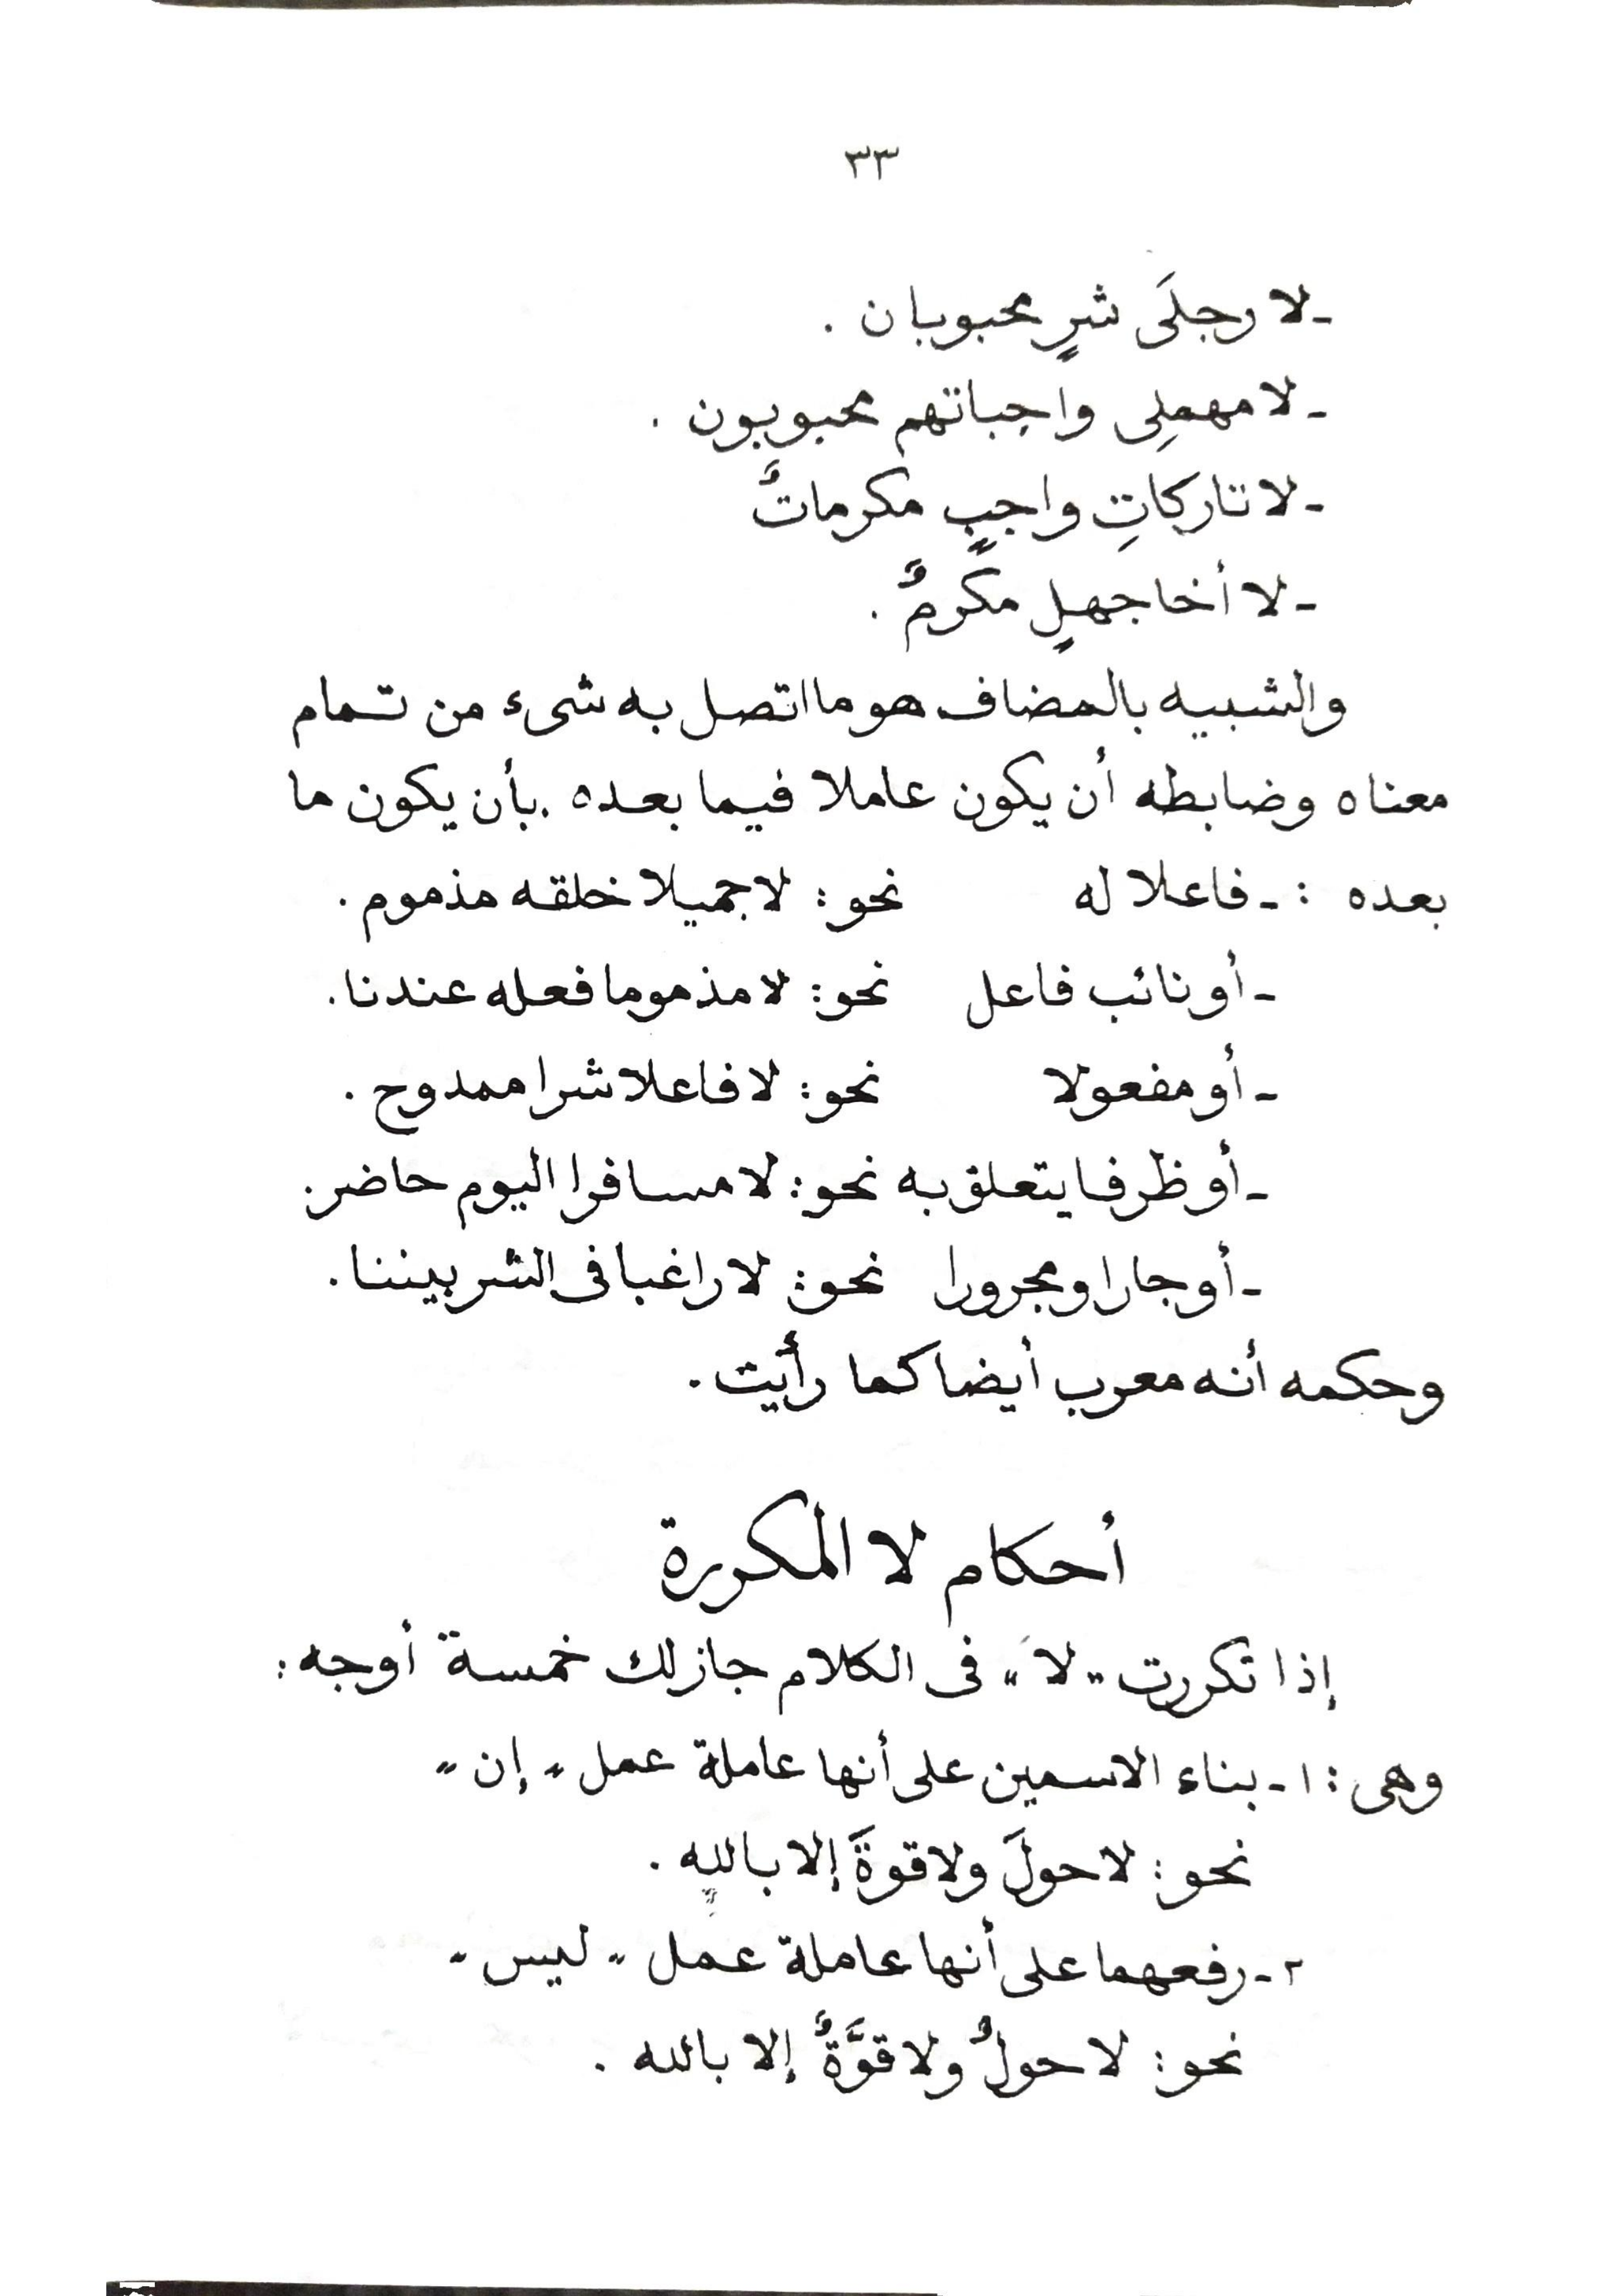 ٣٣
- لا رجلَى شرٍ محبوبان .
- لا مهملِى واجِباتهم محبوبون .
- لا تاركاتِ واجبٍ مكرماتٌ
- لا أخا جهلٍ مكرمٌ .
والشبيه بالمضاف هو ما اتصل به شىء من تمام
معناه وضابطه أن يكون عاملا فيما بعده . بأن يكون ما
بعده : - فاعلا له نحو : لا جميلا خلقه مذموم .
- أو نائب فاعل نحو : لا مذموما فعله عندنا .
- أو مفعولا نحو : لا فاعلا شرا ممدوح .
- أو ظرفا يتعلق به نحو : لا مسافرا اليوم حاضر .
- أو جارا ومجرورا نحو : لا راغبا فى الشر بيننا .
وحكمه أنه معرب أيضا كما رأيت .
أحكام لا المكررة
إذا تكررت " لا " فى الكلام جاز لك خمسة أوجه :
وهى : ١ - بناء الاسمين على أنها عاملة عمل " إن "
نحو : لا حولَ ولا قوةَ إلا بالله .
٢ - رفعهما على أنها عاملة عمل " ليس "
نحو : لا حولٌ ولا قوَّةٌ إلا بالله .